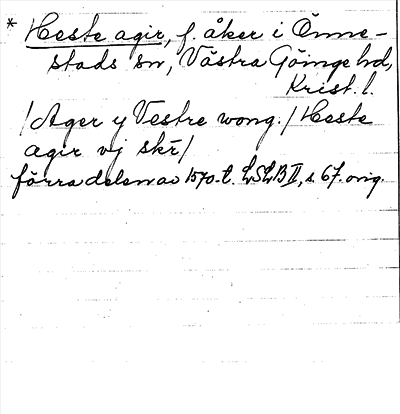 * Heste agir, f. åker i Önne-
stads sn, Västra Göinge hd,
Krist. l.
/Ager y Vestre wong./Heste
agir vj skr̄/
förra delen av 1570-t. LSLB II, s 67. orig.